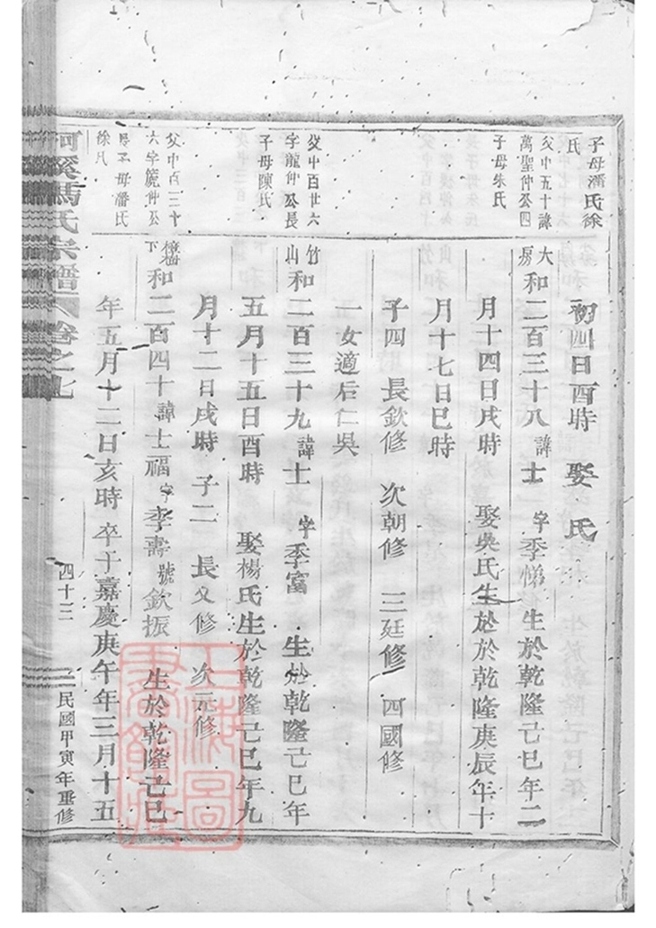 子母潘氏徐
氏
初四日酉時 娶 氏
父中五十諱
萬聖仲公四
子母朱氏
大房
和二百三十八諱士 字季悌 生於乾隆己巳年二
月十四日戌時 娶吳氏生於於乾隆庚辰年十
月十七日巳時
子四 長欽修 次朝修 三廷修 四國修
一女適后仁吳
父中百廿六
字龍仲公長
子母陳氏
竹山
和二百三十九諱士 字季富 生於乾隆己巳年
五月十五日酉時 娶楊氏生於乾隆己巳年九
月十二日戌時 子二 長文修 次元修
父中百三十
六字範仲公
子母潘氏
徐氏
下
和二百四十諱士福字李壽號欽振 生於乾隆己巳
年五月十二日亥時 卒于嘉慶庚午年三月十五
河溪馬氏宗譜
卷之七
四十三
民國甲寅年重修
上海圖書館藏